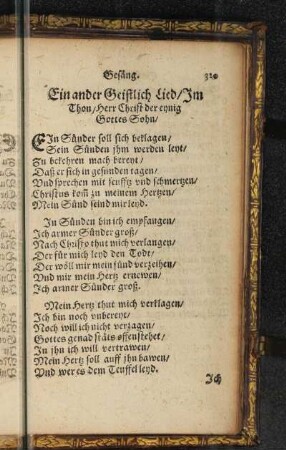 Gesäng. 320
Ein ander Geistlich Lied/Im
Thon/Herr Christ der eynig
Gottes Sohn/
EIn Sünder soll sich beklagen/
Sein Sünden jhm werden leyt/
Zu bekehren mach bereyt/
Daß er sich in gesunden tagen/
Vnd sprechen mit seufftz vnd schmertzen/
Christus koß zu meinem Hertzen/
Mein Sünd seind mir leyd.
In Sünden bin ich empfangen/
Ich armer Sünder groß/
Nach Christo thut mich verlangen/
Der für mich leyd den Todt/
Der wöll mir mein sünd verzeihen/
Vnd mir mein Hertz ernewen/
Ich armer Sünder groß.
Mein Hertz thut mich verklagen/
Ich bin noch vnbereyt/
Noch will ich nicht verzagen/
Gottes genad stäts offenstehet/
In jhn ich will vertrawen/
Mein Hertz soll auff jhn bawen/
Vnd wer es dem Teuffel leyd.
Ich